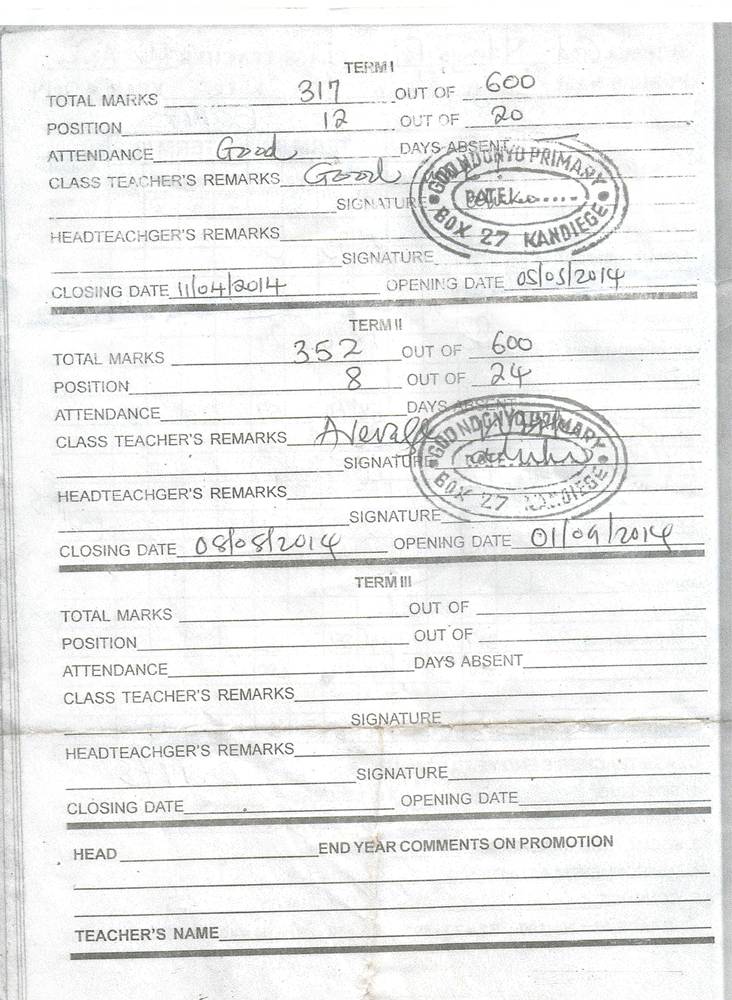 TERM I
TOTAL MARKS 317 OUT OF 600
POSITION 12 OUT OF 20
ATTENDANCE Good DAYS ABSENT
CLASS TEACHER'S REMARKS Good
SIGNATURE
GOD NDONYO PRIMARY
DATE
BOX 27 KANDIEGE
HEADTEACHGER'S REMARKS
SIGNATURE
CLOSING DATE 11/04/2014 OPENING DATE 05/05/2014
TERM II
TOTAL MARKS 352 OUT OF 600
POSITION 8 OUT OF 24
ATTENDANCE DAYS ABSENT
CLASS TEACHER'S REMARKS Average
SIGNATURE
GOD NDONYO PRIMARY
BOX 27 KANDIEGE
HEADTEACHGER'S REMARKS
SIGNATURE
CLOSING DATE 08/08/2014 OPENING DATE 01/09/2014
TERM III
TOTAL MARKS OUT OF
POSITION OUT OF
ATTENDANCE DAYS ABSENT
CLASS TEACHER'S REMARKS
SIGNATURE
HEADTEACHGER'S REMARKS
SIGNATURE
CLOSING DATE OPENING DATE
HEAD END YEAR COMMENTS ON PROMOTION
TEACHER'S NAME